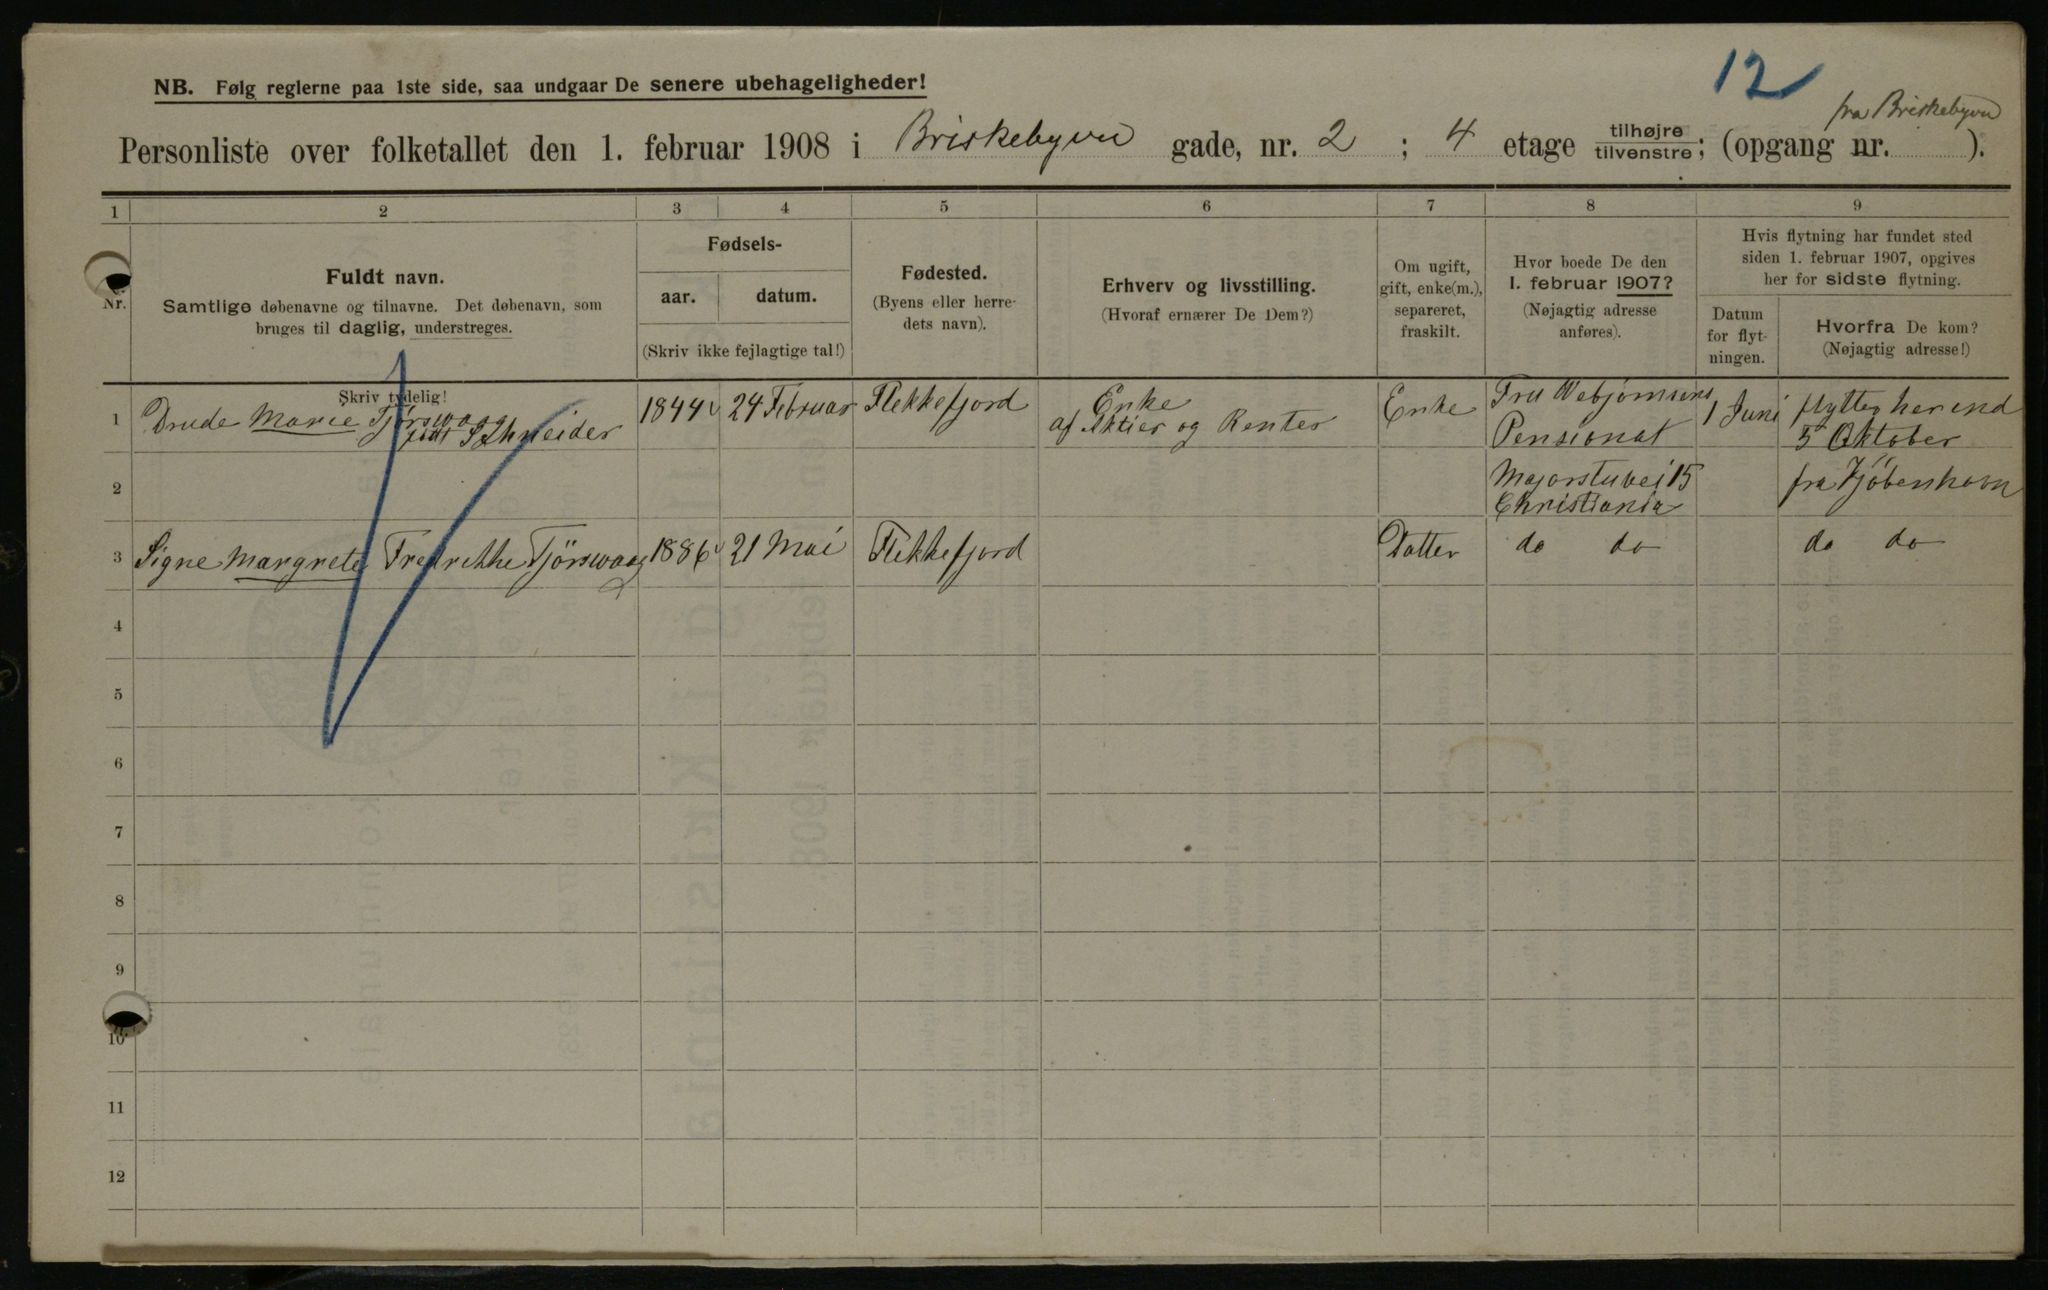 12
NB. Følg reglerne paa 1ste side, saa undgaar De senere ubehageligheder!
fra Briskebyvn
Personliste over folketallet den 1. februar 1908 i Briskebyvn gade, nr. 2 ; 4 etage tilhøjre tilvenstre; (opgang nr. ).
1 2 3 4 5 6 7 8 9
Nr.
Fuldt navn.
Samtlige døbenavne og tilnavne. Det døbenavn, som
bruges til daglig, understreges.
Skriv tydelig!
Fødsels-
aar. datum.
(Skriv ikke fejlagtige tal!)
Fødested.
(Byens eller herre-
dets navn).
Erhverv og livsstilling.
(Hvoraf ernærer De Dem?)
Om ugift,
gift, enke(m.),
separeret,
fraskilt.
Hvor boede De den
1. februar 1907?
(Nøjagtig adresse
anføres).
Hvis flytning har fundet sted
siden 1. februar 1907, opgives
her for sidste flytning.
Datum
for flyt-
ningen.
Hvorfra De kom?
(Nøjagtig adresse!)
1 Drude Marie Tjörswaag
født Schneider
1844 24 Februar Flekkefjord
Enke
af Aktier og Renter
Enke
Fru
Pensionat
Majorstuvei 15
Christiania
1 Juni flytteg her ind
5 Oktober
fra Kjöbenhavn
2
3 Signe Margrete Fredrikke Tjörswaag 1886 21 Mai Flekkefjord Datter do do do do
4
5
6
7
8
9
10
11
12